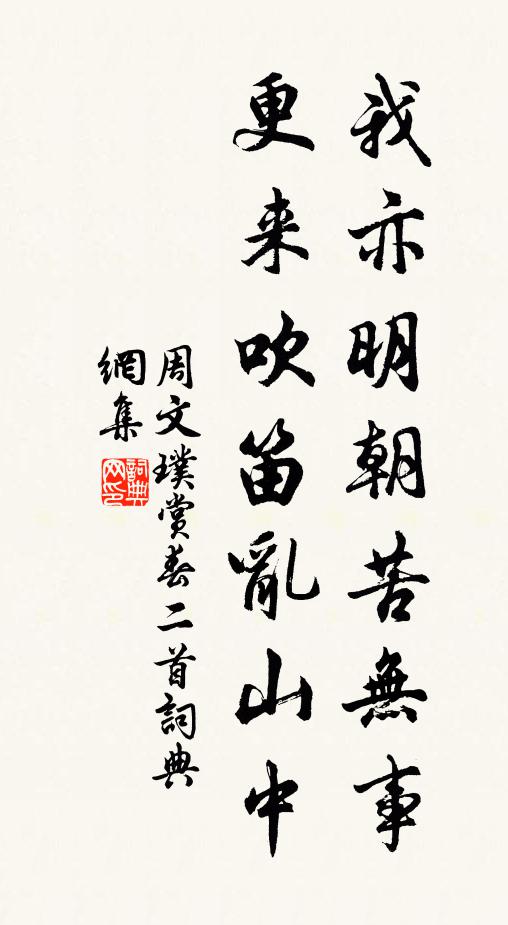 我亦明朝苦無事
更来吹笛亂山中
周文璞賞春二首詞典
網集
詞典網印